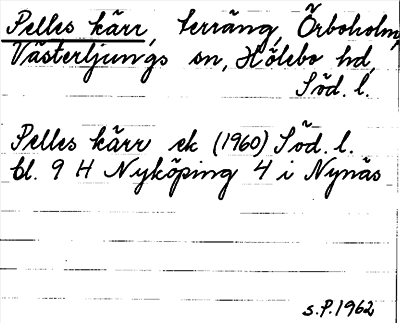 Pelles kärr, terräng, Örboholm,
Västerljungs sn, Hölebo hd,
Söd. l.
Pelles kärr ek (1960) Söd. l.
bl. 9 H Nyköping 4 i Nynäs
s.P. 1962